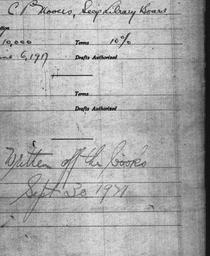 C B Moores, Secy Library Board
10,000 Terms 10%
6, 1917 Drafts Authorized
Terms
Drafts Authorized
Written off the books
Sept 30 1921